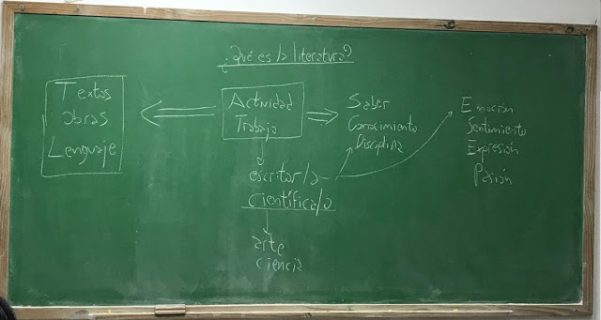 ¿Qué es la literatura?
Textos
Obras
Lenguaje
Actividad
Trabajo
Saber
Conocimiento
Disciplina
Emoción
Sentimiento
Expresión
Pasión
escritor/a
científica/o
arte
ciencia